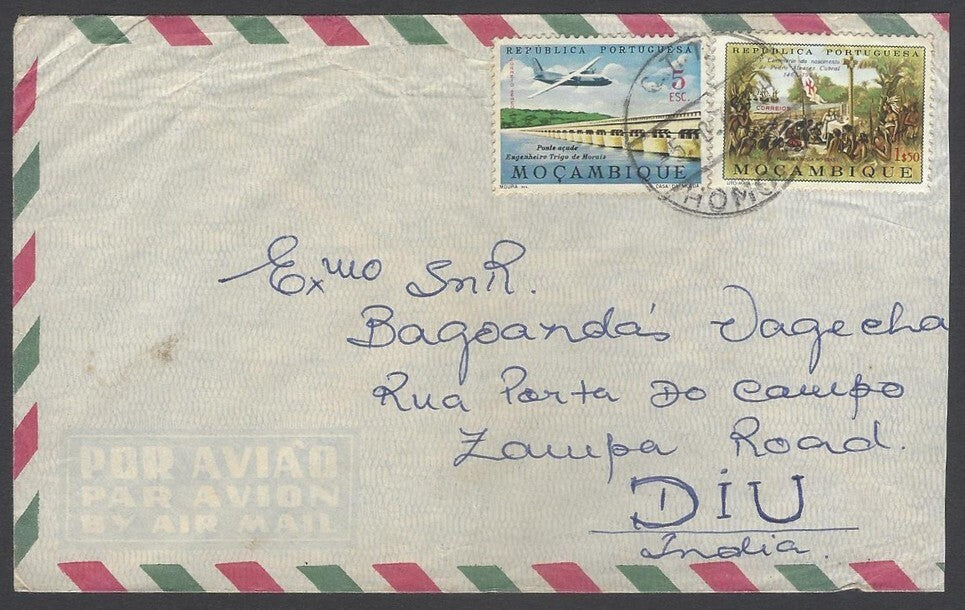 REPÚBLICA PORTUGUESA
5
ESC.
Ponte açude
Engenheiro Trigo de Morais
MOÇAMBIQUE
MOURA CASA DA MOEDA
REPÚBLICA PORTUGUESA
Centenário do nascimento
Pedro Álvares Cabral
CORREIOS
1$50
MOÇAMBIQUE
Exmo SnR.
Bagoandás Vagecha
Rua Porta Do Campo
Zampa Road.
DIU
India.
POR AVIÃO
PAR AVION
BY AIR MAIL